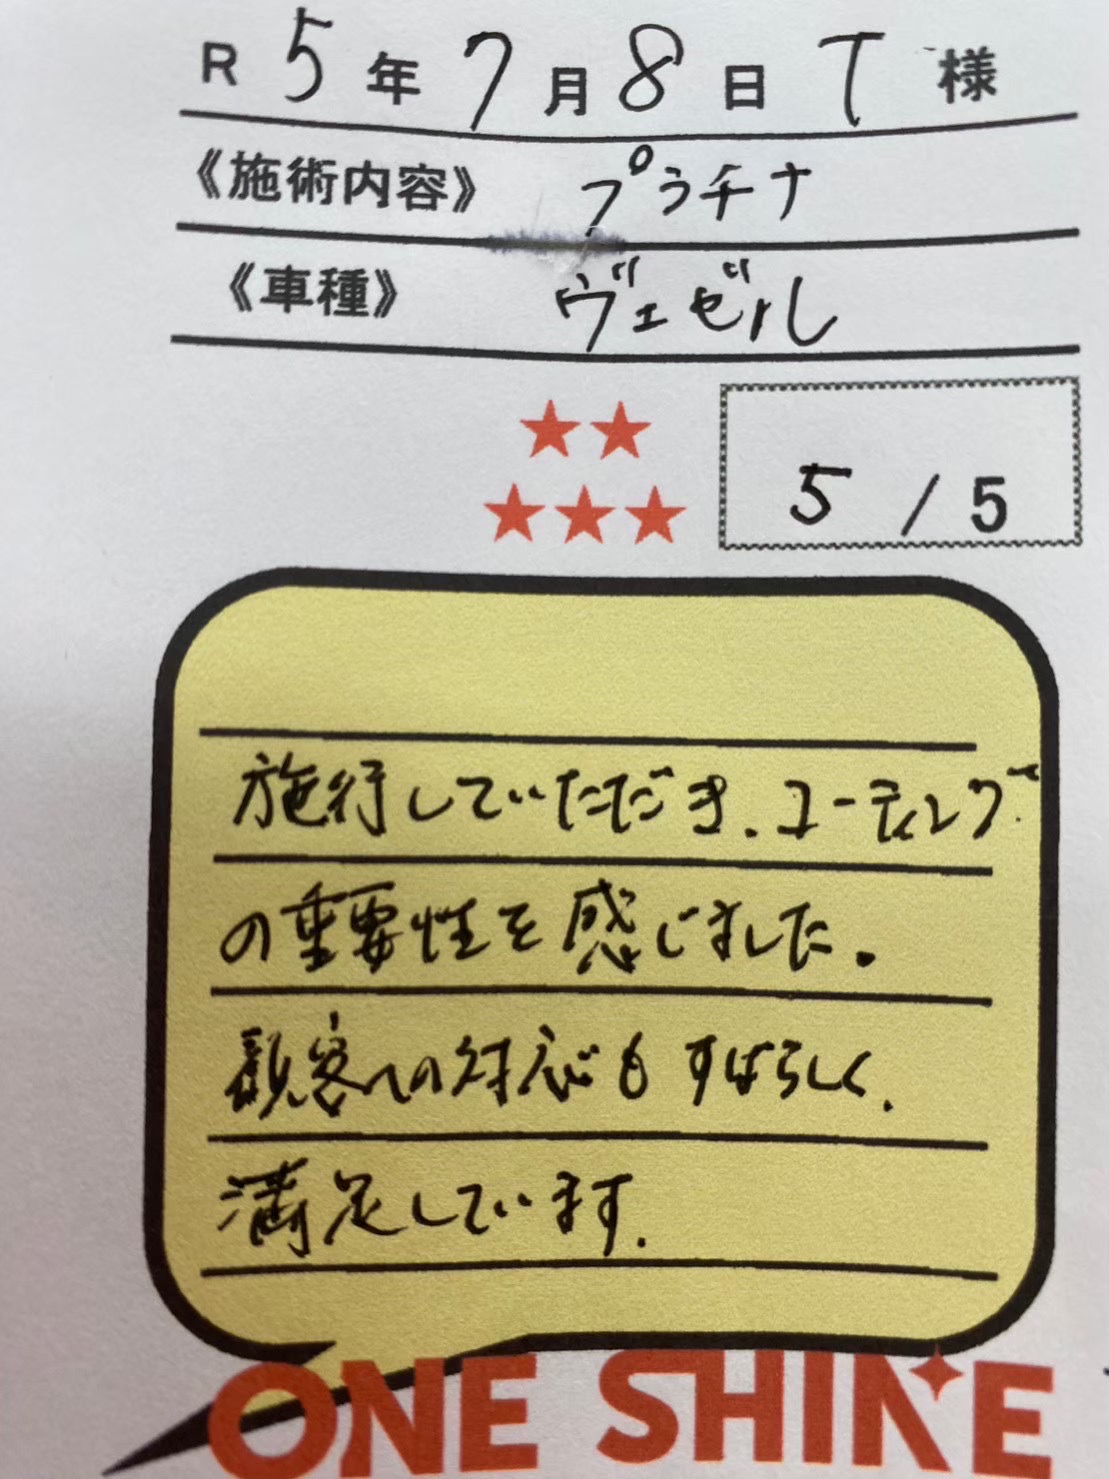 R 5年 7月 8日 T 様
《施術内容》 プラチナ
《車種》 ヴェゼル
5 / 5
施行していただき、コーティング
の重要性を感じました。
顧客への対応もすばらしく、
満足しています。
ONE SHINE